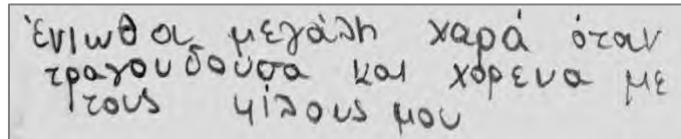 Ένιωθα μεγάλη χαρά όταν
τραγουδούσα και χόρευα με
τους φίλους μου